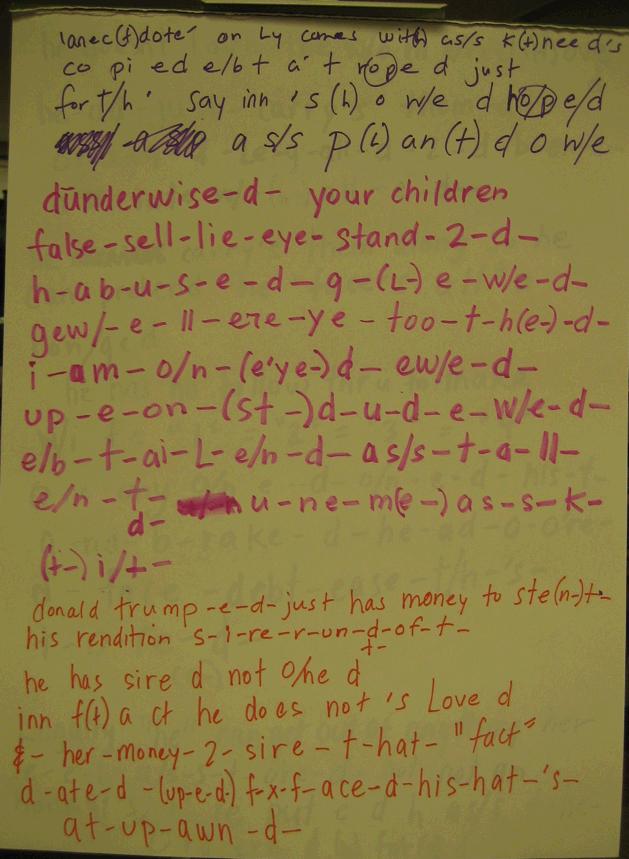 lanec(t)dote' on Ly comes with as/s k(t)need's
co pi ed e/b t a' t rope d just
for t/h ' say inn 's (h) o w/e d ho/p e/d
a s/s p(L) an(t) d o w/e
dūnderwise-d- your children
false-sell-lie-eye- stand-2-d-
h-ab-u-s-e-d-g-(L-) e-w/e-d-
gew/-e-ll-ere-ye-too-t-h(e-)-d-
i-am-o/n-(e'ye-)d- ew/e-d-
up-e-on-(st-)d-u-d-e-w/e-d-
e/b-t-ai-L-e/n-d-as/s-t-a-ll-
e/n-t- u-ne-m(e-) as-s-k-
d-
(t-) i/t-
donald trump-e-d-just has money to ste(n-)t-
his rendition s-1-re-r-un-d-of-t-
t-
he has sire d not o/he d
inn f(t) a ct he does not 's Love d
&- her-money-2-sire-t-hat-"fact"
d-ate-d-(up-e-d-) f-x-f-ace-d-his-hat-'s-
at-up-awn-d-